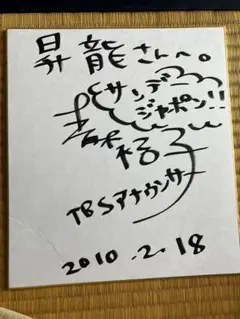 昇龍さんへ。
サンデー
ジャポン!!
青木
裕子
TBSアナウンサー
2010.2.18